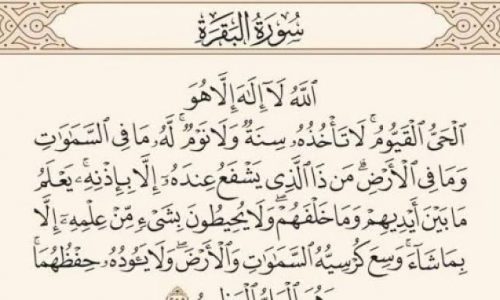 سُورَةُ البَقَرَة
ٱللَّهُ لَآ إِلَٰهَ إِلَّا هُوَ
ٱلْحَىُّ ٱلْقَيُّومُ ۚ لَا تَأْخُذُهُۥ سِنَةٌ وَلَا نَوْمٌ ۚ لَّهُۥ مَا فِى ٱلسَّمَٰوَٰتِ
وَمَا فِى ٱلْأَرْضِ ۗ مَن ذَا ٱلَّذِى يَشْفَعُ عِندَهُۥٓ إِلَّا بِإِذْنِهِۦ ۚ يَعْلَمُ
مَا بَيْنَ أَيْدِيهِمْ وَمَا خَلْفَهُمْ ۖ وَلَا يُحِيطُونَ بِشَىْءٍ مِّنْ عِلْمِهِۦٓ إِلَّا
بِمَا شَآءَ ۚ وَسِعَ كُرْسِيُّهُ ٱلسَّمَٰوَٰتِ وَٱلْأَرْضَ ۖ وَلَا يَـُٔودُهُۥ حِفْظُهُمَا ۚ